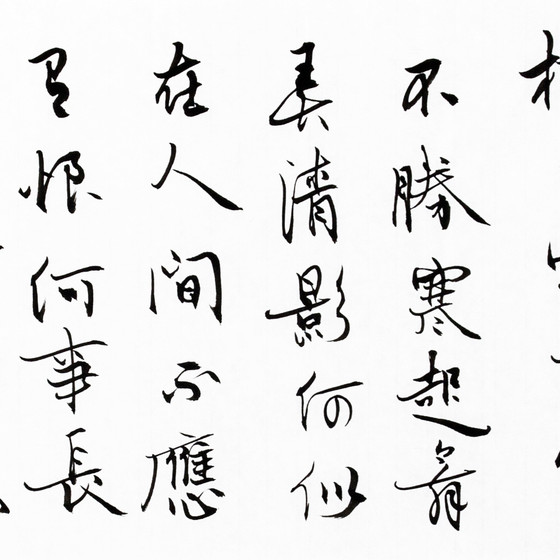 不勝寒起舞
弄清影何似
在人間不應
有恨何事長